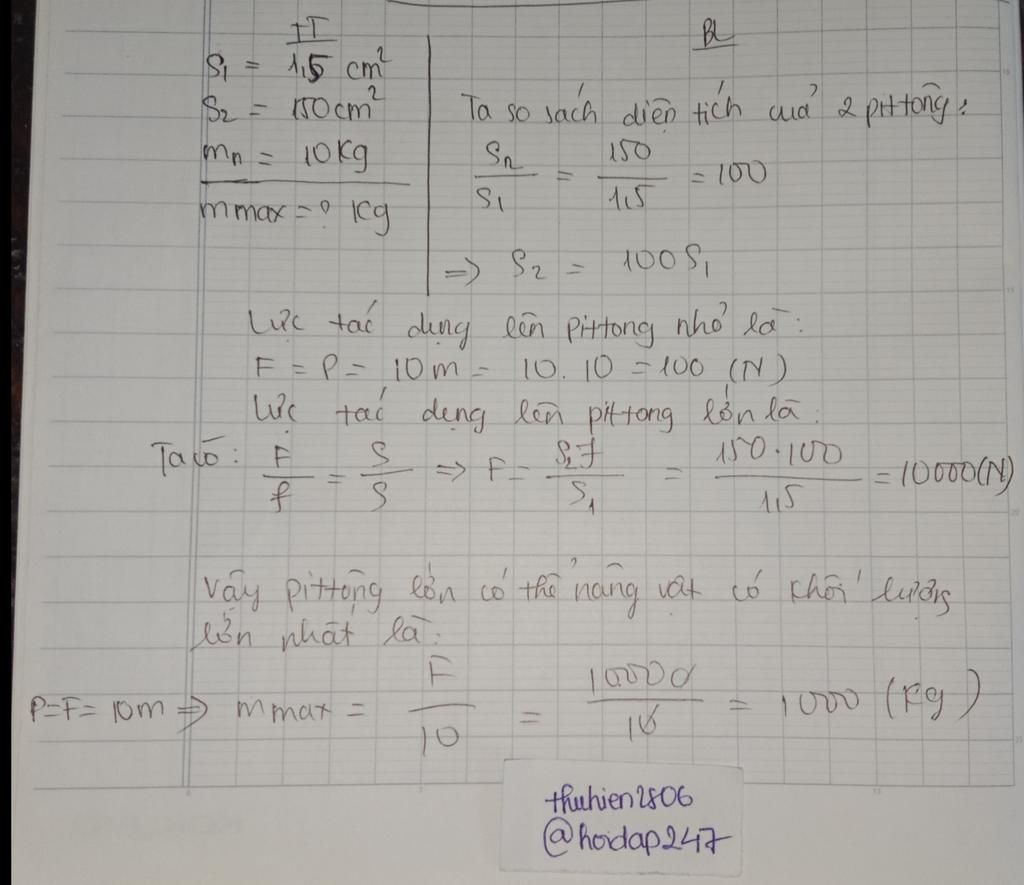 TT
S₁ = 1,5 cm²
S₂ = 150cm²
mₙ = 10Kg
m max = ? Kg
BL
Ta so sách diện tích cuả 2 pittông:
Sₙ/S₁ = 150/1,5 = 100
=> S₂ = 100S₁
Lực tác dụng lên pittong nhỏ là:
F = P = 10m = 10.10 = 100 (N)
Lực tác dụng lên pittong lớn là:
Ta có: F/f = S/S => F = S₂f/S₁ = 150.100/1,5 = 10000(N)
Vậy pittông lớn có thể nâng vật có khối lượng
lớn nhất là:
P=F= 10m => m max = F/10 = 10000/10 = 1000 (kg)
thuhien2806
@hoidap247